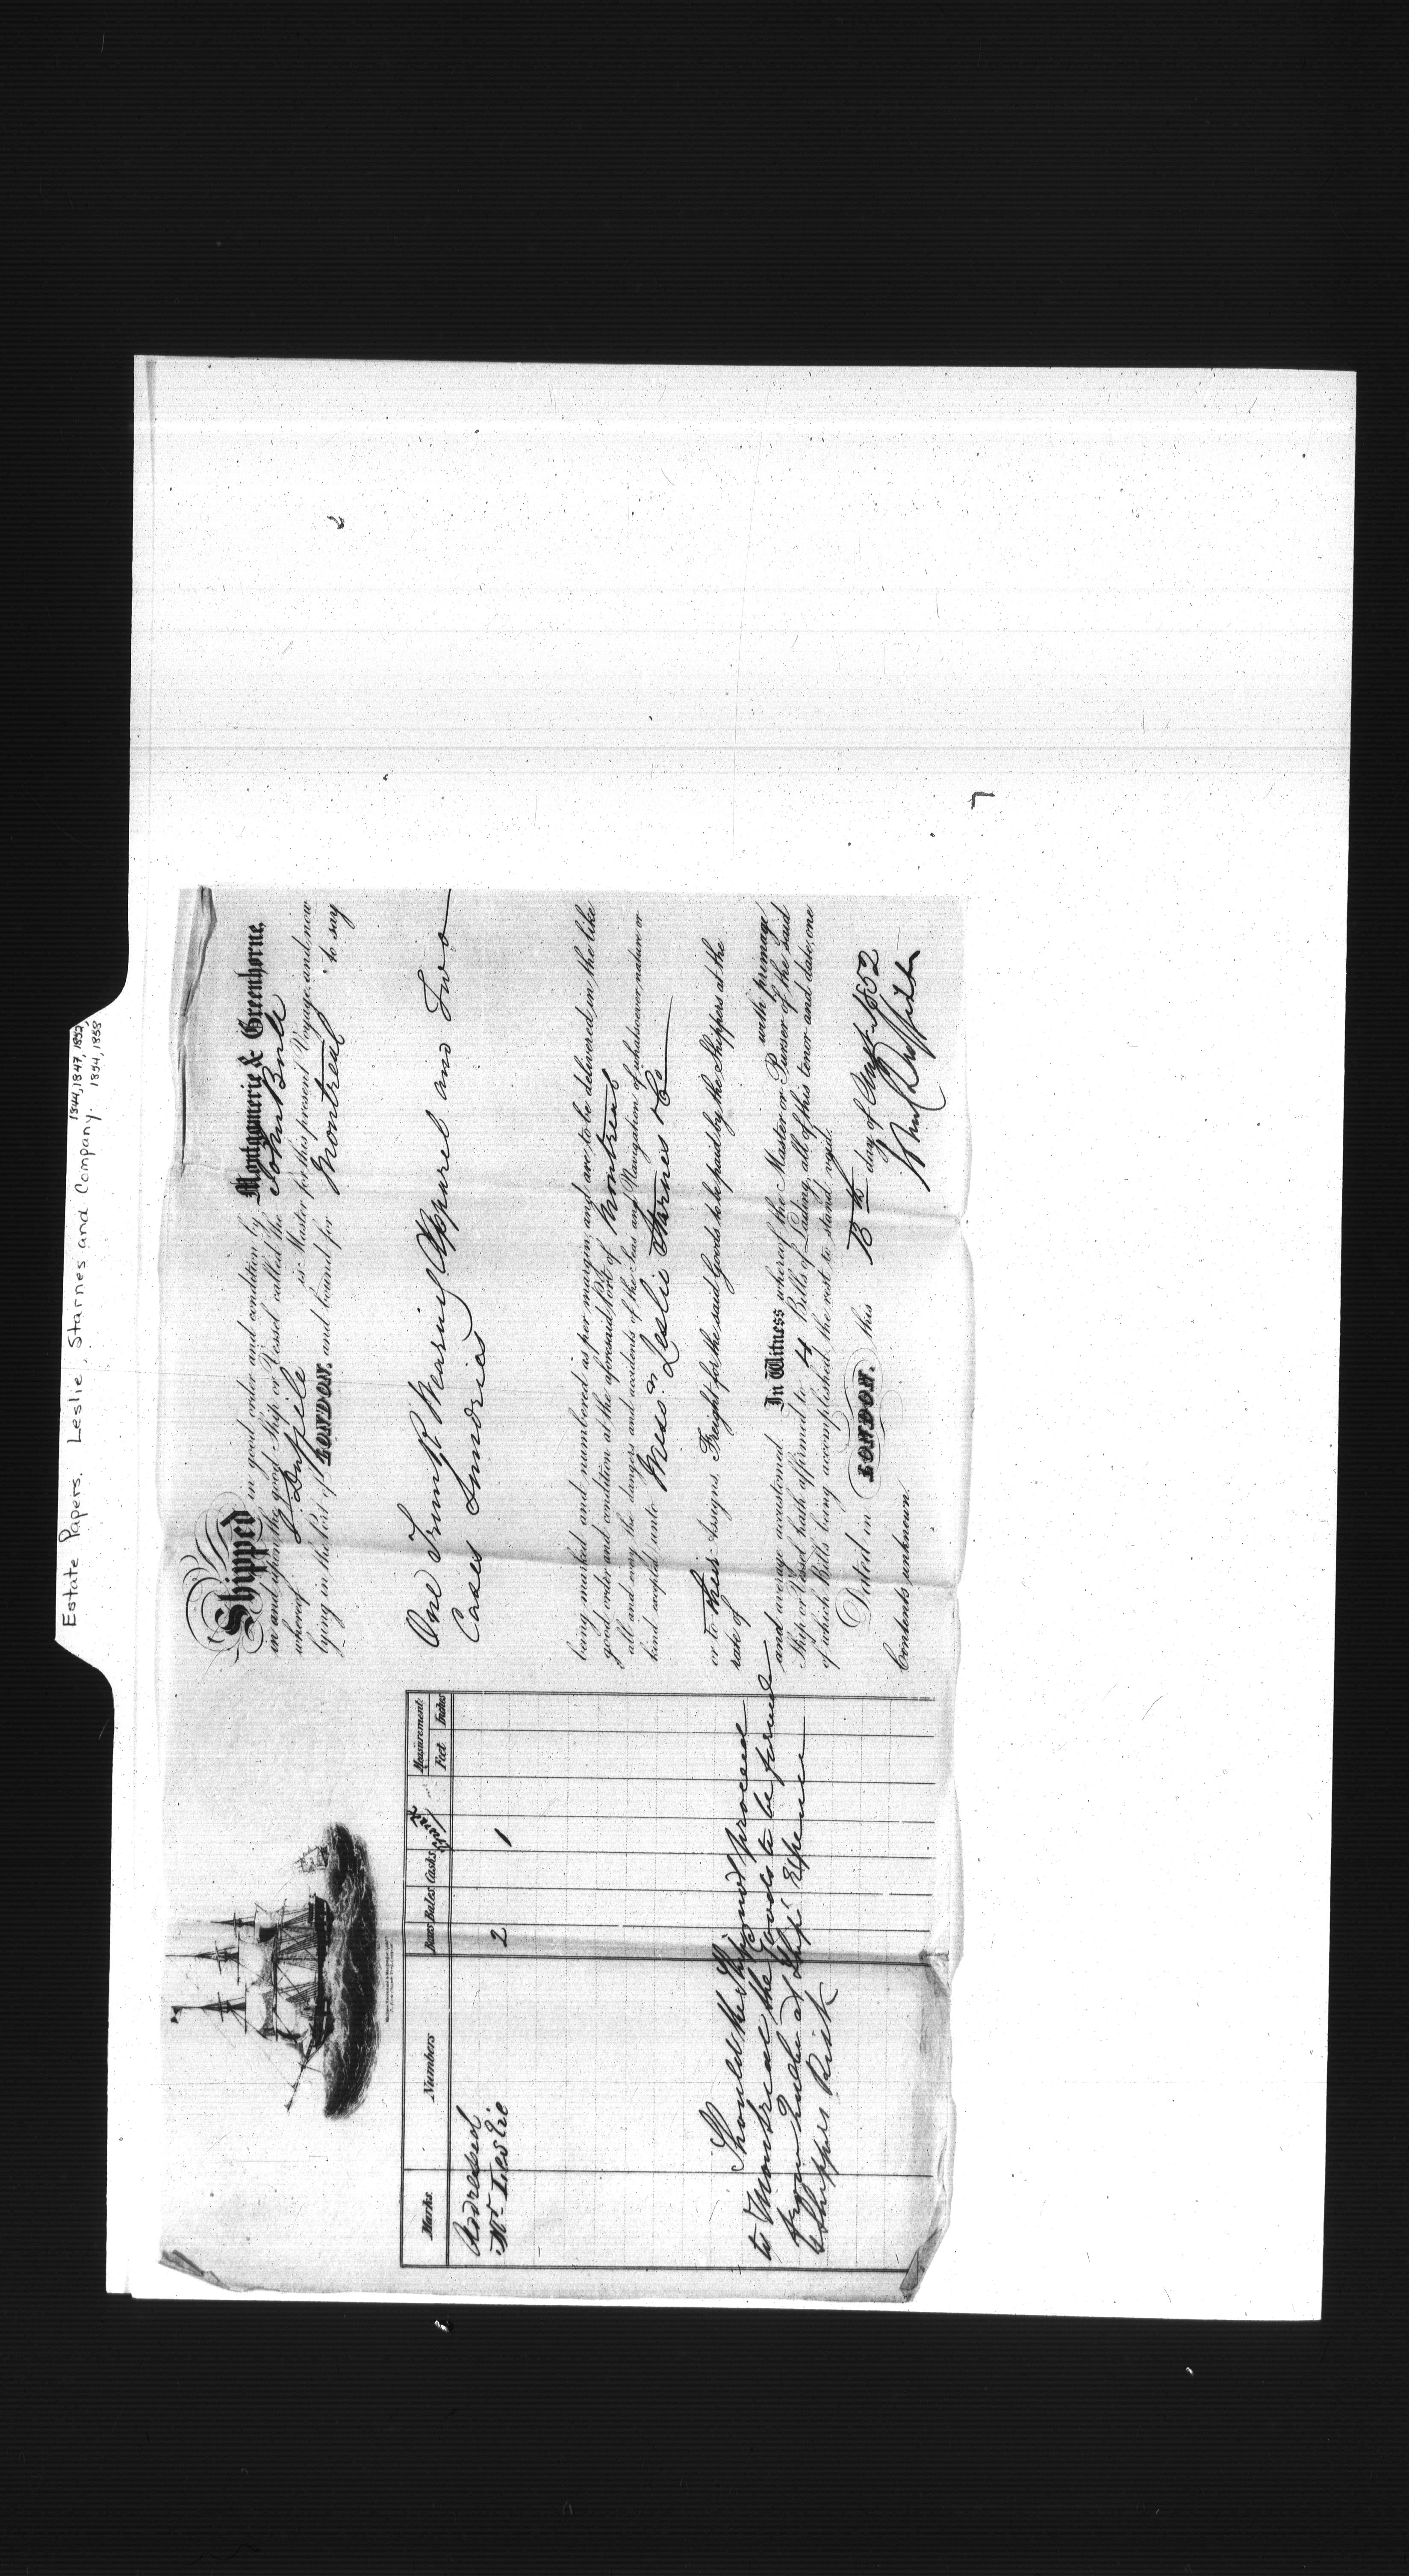 Estate Papers. Leslie, Starnes and Company. 1844, 1847, 1852,
1854, 1858
Shipped in good order and condition by Montgomerie & Greenhorne,
in and upon the good Ship or Vessel called the John Bull
whereof J. Duffill is Master for this present Voyage, and now
lying in the Port of LONDON. and bound for Montreal to say
One Trunk Wearing Apparel and Two
Cases Sundries
being marked and numbered as per margin, and are to be delivered, in the like
good order and condition at the aforesaid Port of Montreal
all and every the dangers and accidents of the Seas and Navigation of whatsoever nature or
kind excepted, unto Mess rs Leslie Starnes & Co
or to their Assigns. Freight for the said Goods to be paid by the Shippers at the
rate of with primage
and average accustomed. In Witness whereof the Master or Purser of the said
Ship or Vessel hath affirmed to 4 Bills of Lading, all of this tenor and date, one
of which Bills being accomplished, the rest to stand void.
Dated in LONDON. this 15th day of 1852
Contents unknown.
Marks. Numbers Boxes Bales Casks Measurement
Feet Inches
Addressed
Mr Leslie 2 1
Should the Ship not proceed
to Montreal the Goods to be forwd
from Quebec at Ships Expence
& Shippers Risk